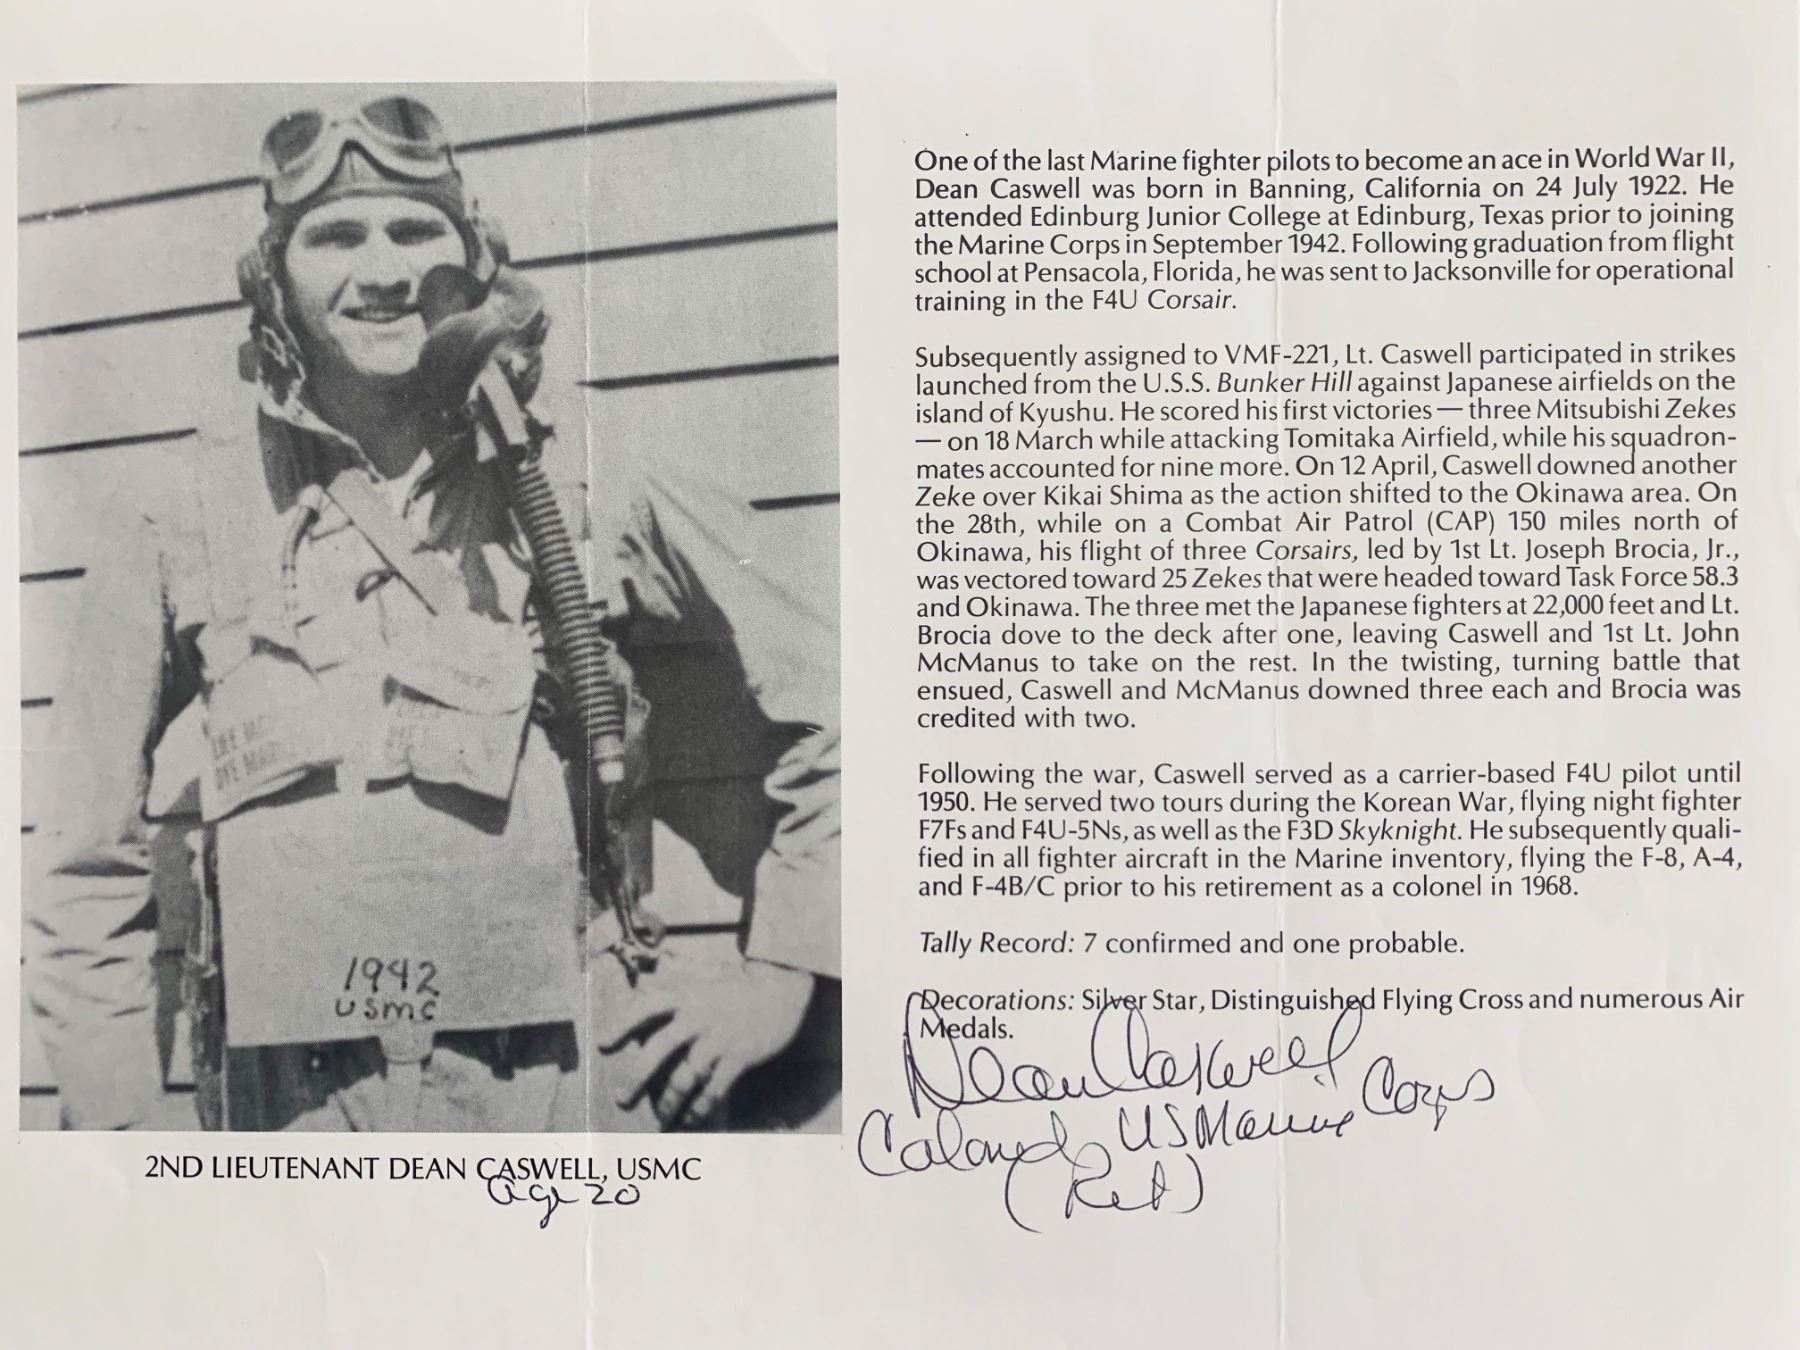 LIFE JAC
DYE MAR
1942
USMC
2ND LIEUTENANT DEAN CASWELL, USMC
age 20
One of the last Marine fighter pilots to become an ace in World War II,
Dean Caswell was born in Banning, California on 24 July 1922. He
attended Edinburg Junior College at Edinburg, Texas prior to joining
the Marine Corps in September 1942. Following graduation from flight
school at Pensacola, Florida, he was sent to Jacksonville for operational
training in the F4U Corsair.
Subsequently assigned to VMF-221, Lt. Caswell participated in strikes
launched from the U.S.S. Bunker Hill against Japanese airfields on the
island of Kyushu. He scored his first victories — three Mitsubishi Zekes
— on 18 March while attacking Tomitaka Airfield, while his squadron-
mates accounted for nine more. On 12 April, Caswell downed another
Zeke over Kikai Shima as the action shifted to the Okinawa area. On
the 28th, while on a Combat Air Patrol (CAP) 150 miles north of
Okinawa, his flight of three Corsairs, led by 1st Lt. Joseph Brocia, Jr.,
was vectored toward 25 Zekes that were headed toward Task Force 58.3
and Okinawa. The three met the Japanese fighters at 22,000 feet and Lt.
Brocia dove to the deck after one, leaving Caswell and 1st Lt. John
McManus to take on the rest. In the twisting, turning battle that
ensued, Caswell and McManus downed three each and Brocia was
credited with two.
Following the war, Caswell served as a carrier-based F4U pilot until
1950. He served two tours during the Korean War, flying night fighter
F7Fs and F4U-5Ns, as well as the F3D Skyknight. He subsequently quali-
fied in all fighter aircraft in the Marine inventory, flying the F-8, A-4,
and F-4B/C prior to his retirement as a colonel in 1968.
Tally Record: 7 confirmed and one probable.
Decorations: Silver Star, Distinguished Flying Cross and numerous Air
Medals.
Dean Caswell
Colonel, US Marine Corps
(Ret)